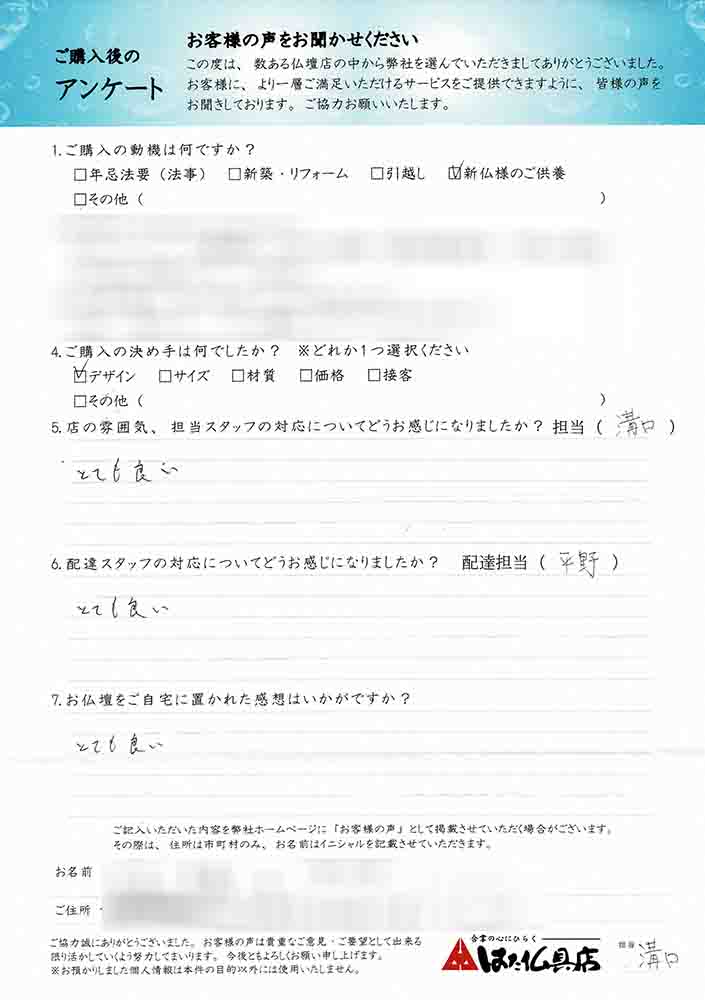 ご購入後の
アンケート
お客様の声をお聞かせください
この度は、数ある仏壇店の中から弊社を選んでいただきましてありがとうございました。
お客様に、より一層ご満足いただけるサービスをご提供できますように、皆様の声を
お聞きしております。ご協力お願いいたします。
1.ご購入の動機は何ですか?
□年忌法要(法事) □新築・リフォーム □引越し ☑新仏様のご供養
□その他( )
4.ご購入の決め手は何でしたか? ※どれか1つ選択ください
☑デザイン □サイズ □材質 □価格 □接客
□その他( )
5.店の雰囲気、担当スタッフの対応についてどうお感じになりましたか?担当(溝口)
とても良い
6.配達スタッフの対応についてどうお感じになりましたか? 配達担当(平野)
とても良い
7.お仏壇をご自宅に置かれた感想はいかがですか?
とても良い
ご記入いただいた内容を弊社ホームページに「お客様の声」として掲載させていただく場合がございます。
その際は、住所は市町村のみ、お名前はイニシャルを記載させていただきます。
お名前
ご住所
ご協力誠にありがとうございました。お客様の声は貴重なご意見・ご要望として出来る
限り活かしていくよう努力してまいります。今後ともよろしくお願い申し上げます。
※お預かりしました個人情報は本件の目的以外には使用いたしません。
合掌の心にひらく
はた仏具店
担当 溝口